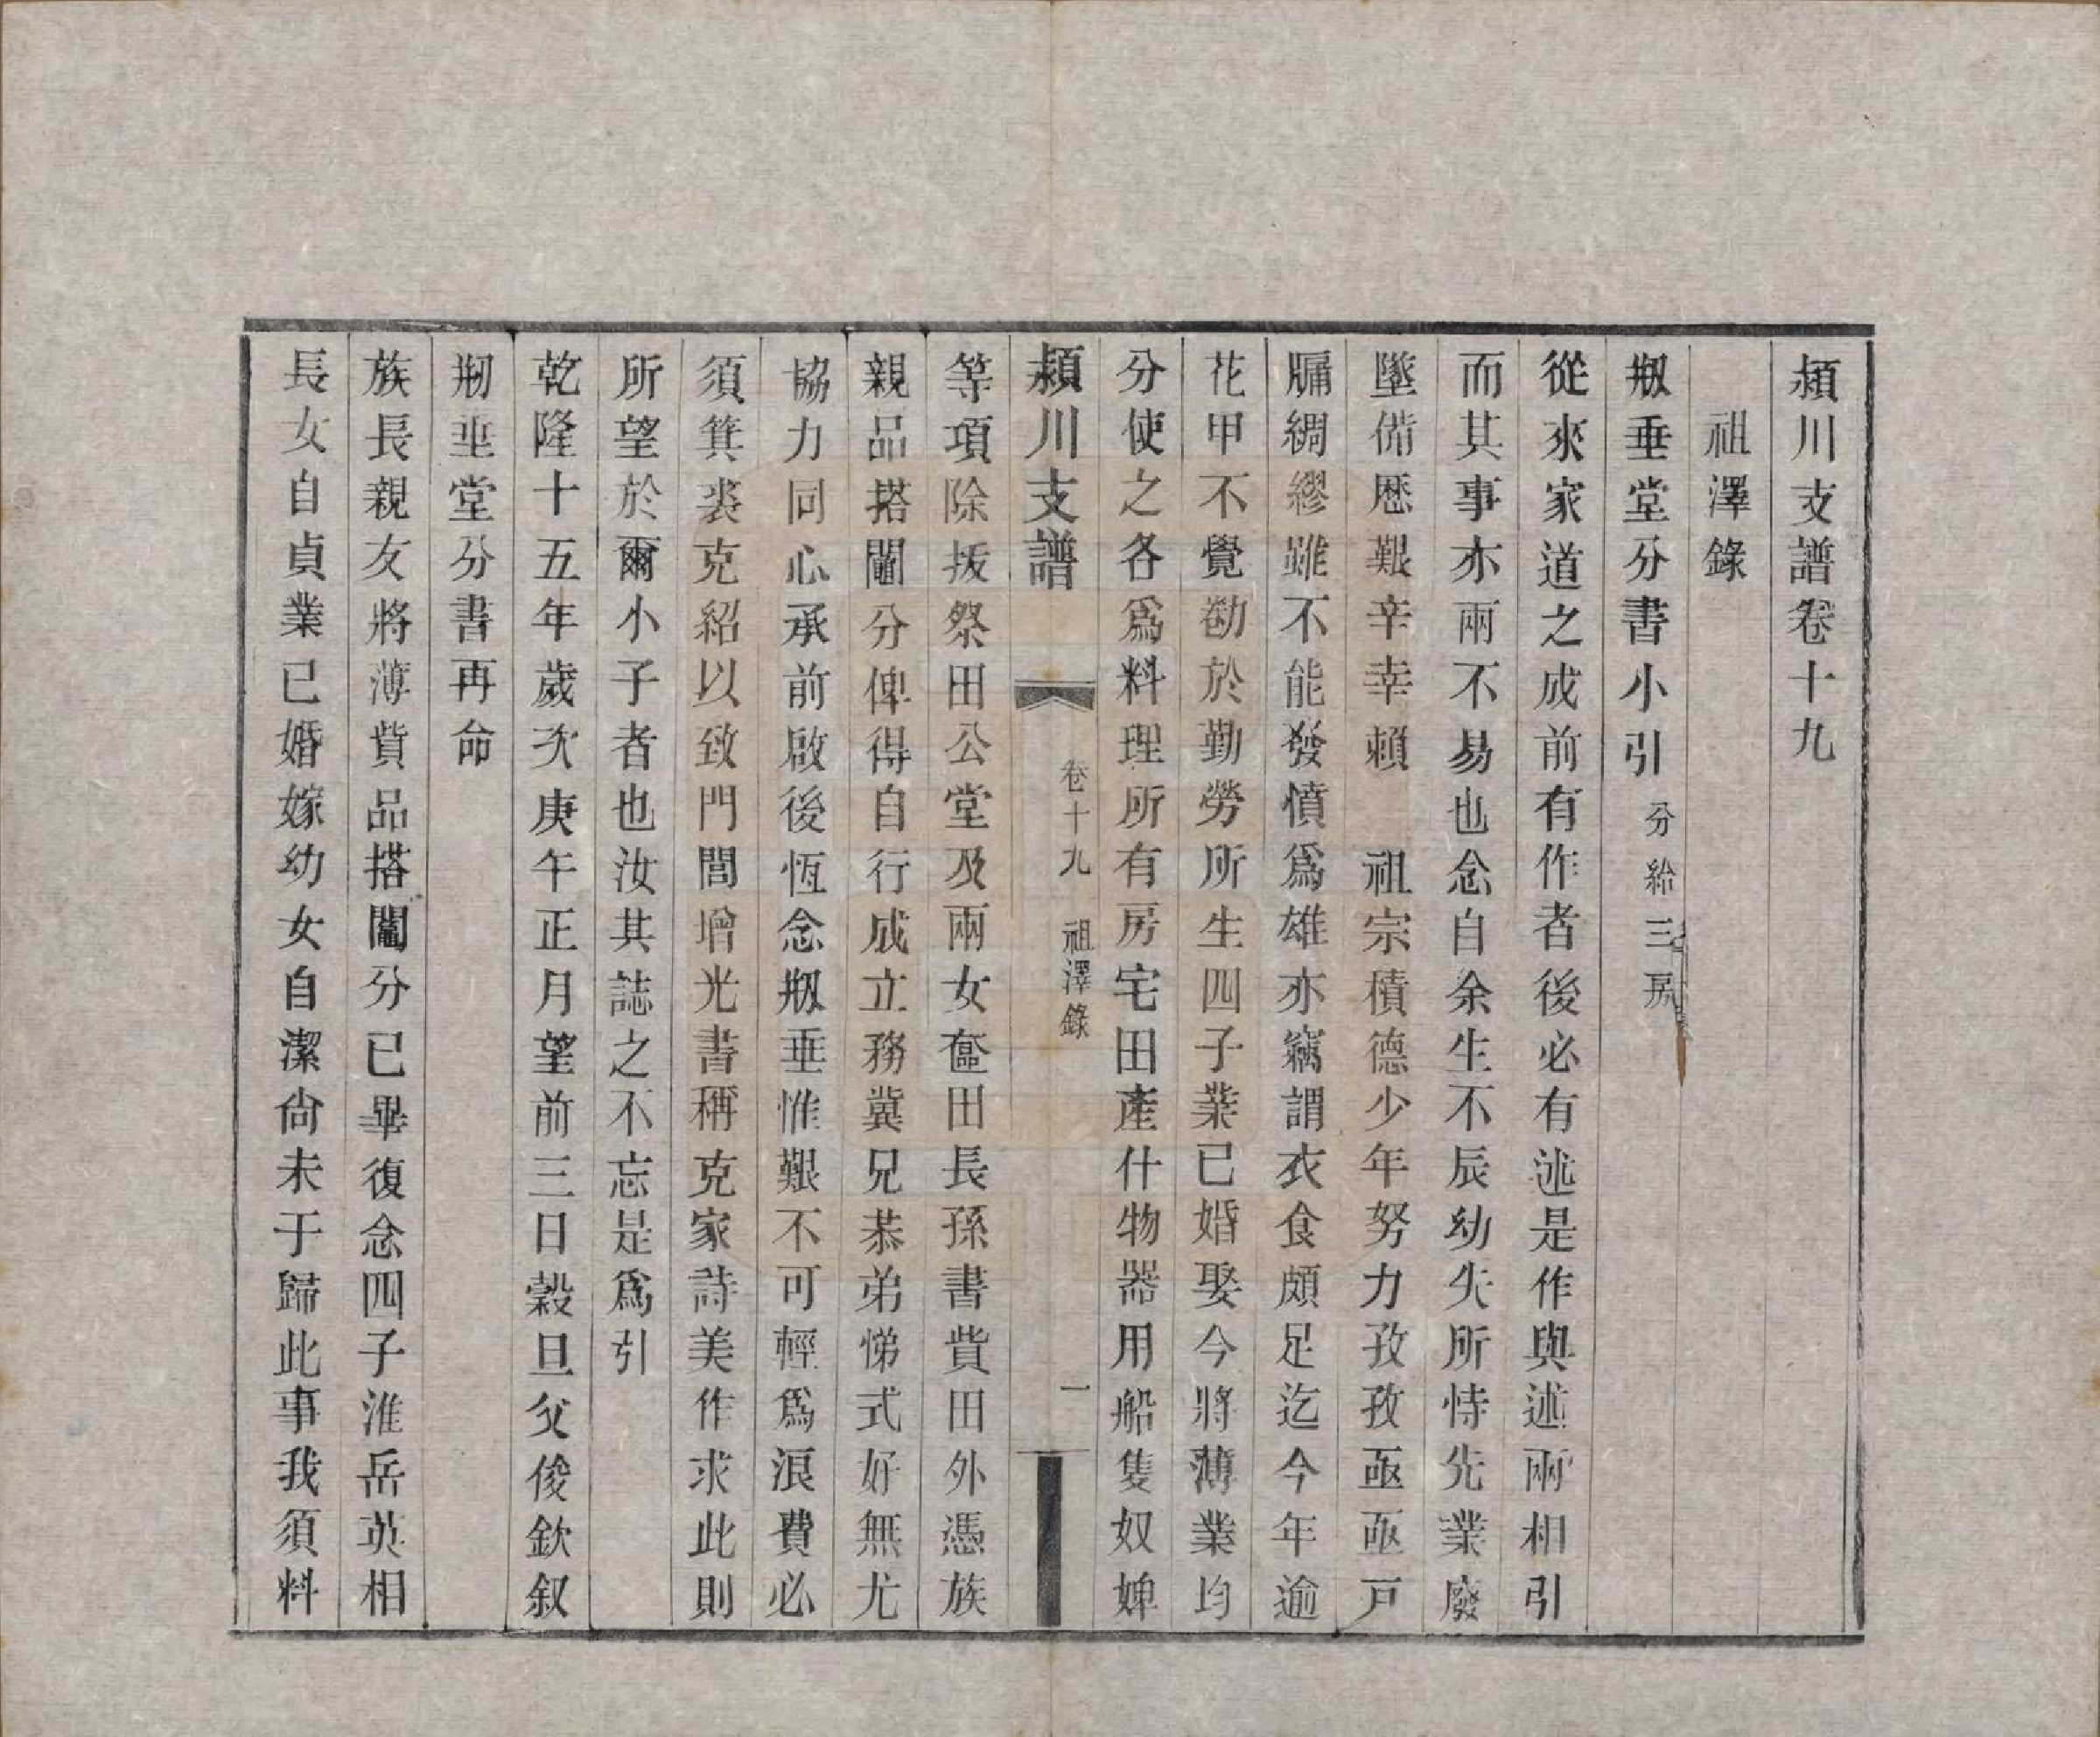 潁川支譜卷十九
祖澤錄
剏垂堂分書小引 分給三房
從來家道之成前有作者後必有述是作與述兩相引
而其事亦兩不易也念自余生不辰幼失所恃先業廢
墜備歷艱辛幸賴 祖宗積德少年努力孜孜亟亟戸
牖綢繆雖不能發憤爲雄亦竊謂衣食頗足迄今年逾
花甲不覺勌於勤勞所生四子業已婚娶今將薄業均
分使之各爲料理所有房宅田產什物器用船隻奴婢
潁川支譜 卷十九 祖澤錄 一
等項除拔祭田公堂及兩女奩田長孫書貲田外憑族
親品搭鬮分俾得自行成立務冀兄恭弟悌式好無尤
協力同心承前啟後恆念剏垂惟艱不可輕爲浪費必
須箕裘克紹以致門閭增光書稱克家詩美作求此則
所望於爾小子者也汝其誌之不忘是爲引
乾隆十五年歲次庚午正月望前三日穀旦父俊欽叙
剏垂堂分書再命
族長親友將薄貲品搭鬮分已畢復念四子淮岳英相
長女自貞業已婚嫁幼女自潔尙未于歸此事我須料